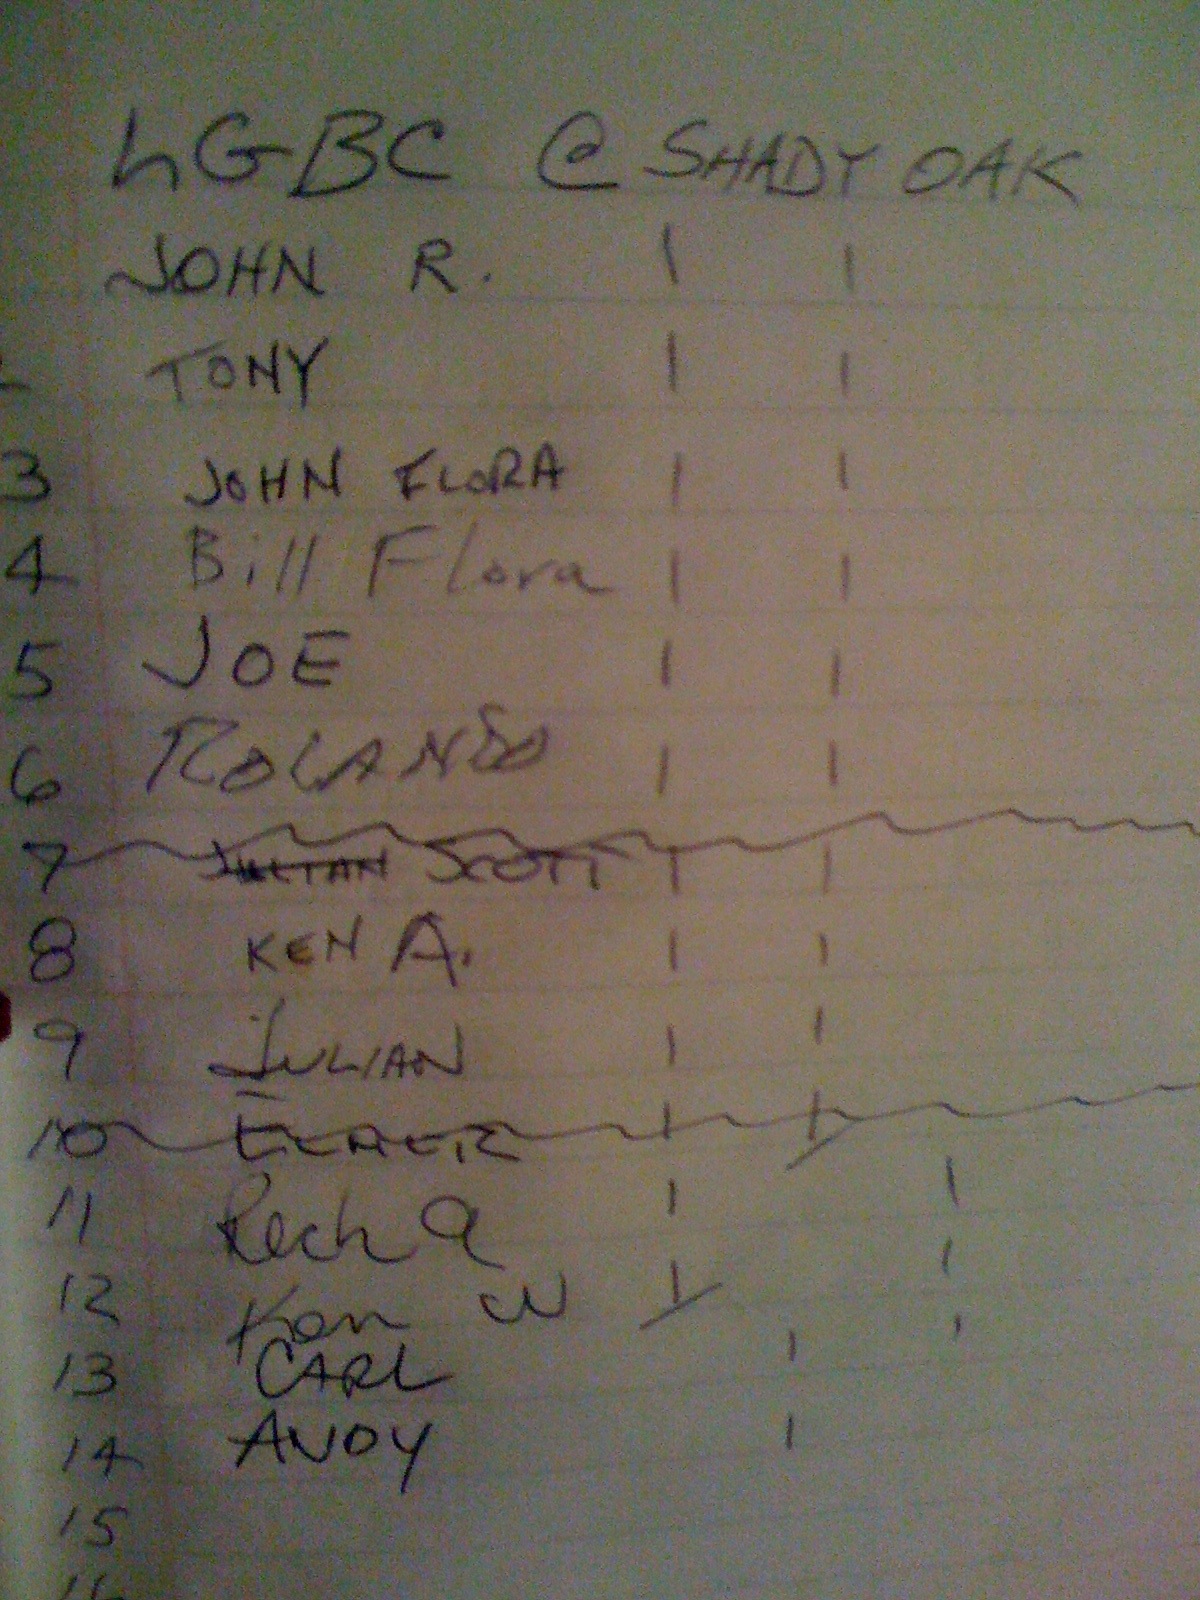 LGBC @ SHADY OAK
JOHN R.
TONY
3 JOHN FLORA
4 Bill Flora
5 JOE
6 ROLANDO
7 JULIAN SCOTT
8 KEN A.
9 JULIAN
10 ELMER
11 Rich A
12 Ken W
13 CARL
14 ANDY
15